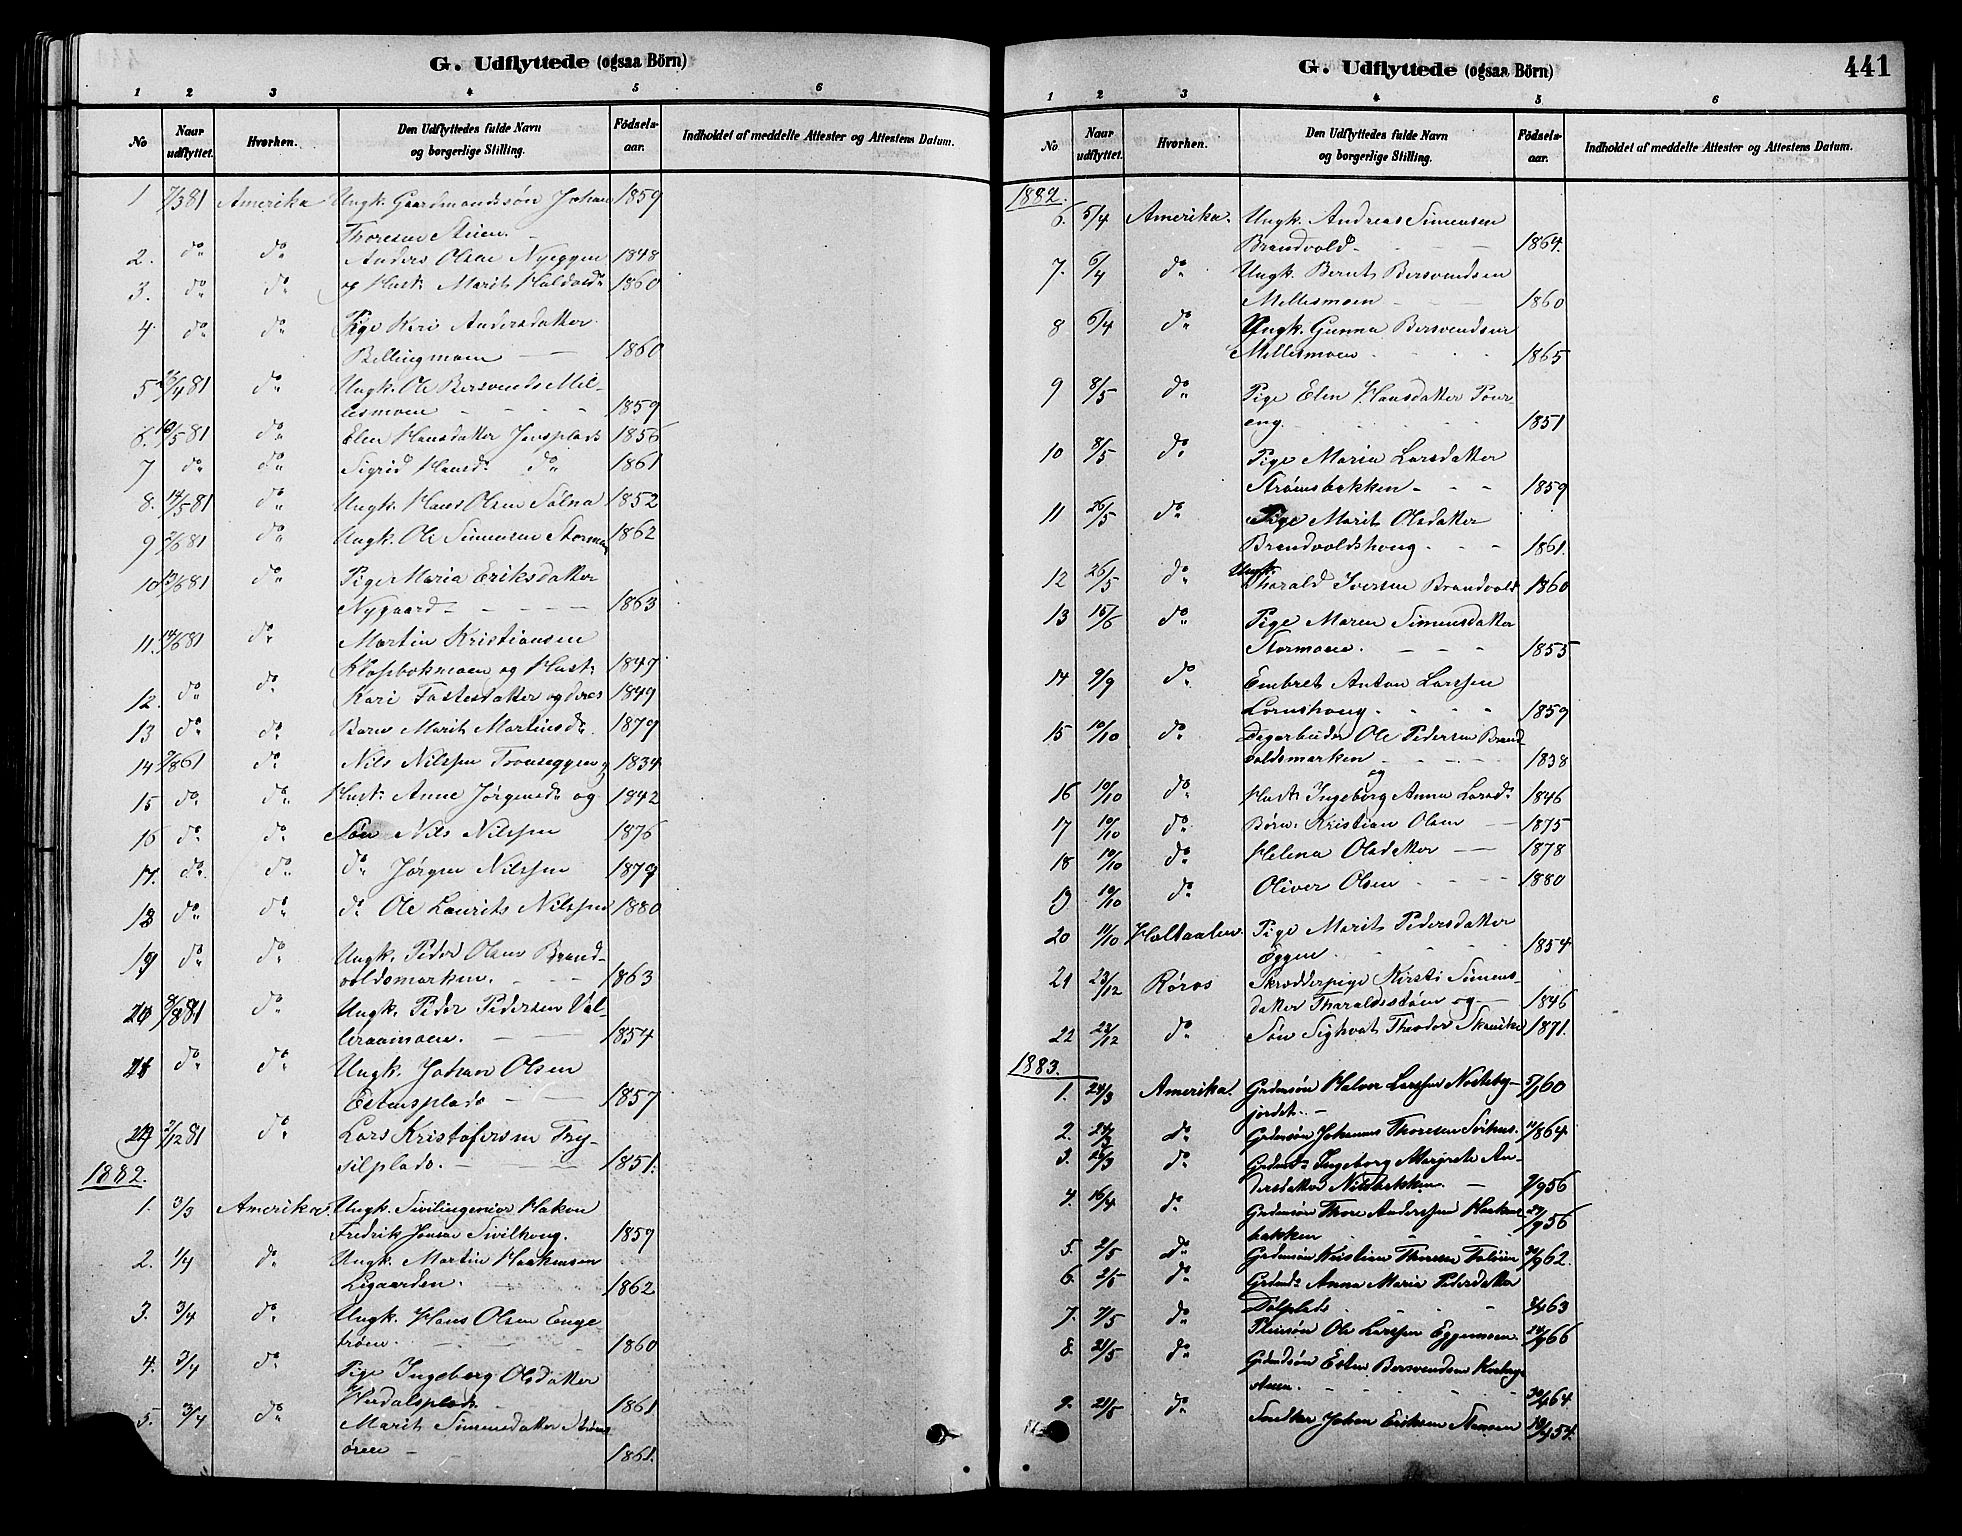 G. Udflyttede (ogsaa Börn)
1 2 3 4 5 6
No Naar udflyttet. Hvorhen. Den Udflyttedes fulde Navn og borgerlige Stilling. Födsels-aar. Indholdet af meddelte Attester og Attestens Datum.
1 7/3 81 Amerika Ungk. Gaardmandssøn Johan 1859
Thoresen Stuen.
2. do do Anders Olsen Nyeggen 1848
3. do do og Hust. Marit Haldvdr 1860
4. do do Pige Kari Andersdatter
Bellingmoen 1860
5 /4 81 do Ungk. Ole Bersvends Mil-
lesmoen 1859
6. 10/5 81 do Elen Hansdatter Jensplads 1856
7 do do Sigrid Hansd. do 1861
8. 14/5 81 do Ungk. Hans Olsen Tølna 1852
9 2/6 81 do Ungk. Ole Simensen Stormoen 1862
10 13/6 81 do Pige Maria Eriksdatter
Nygaard 1863
11. 14/6 81 do Martin Kristiansen
Klopbakmoen og Hust. 1847
12. do do Kari Fastesdatter og deres 1849
13 do do Barn Marit Martinsdr. 1879
14 /8 81 do Nils Nilssen Tronseggen og 1834
15 do do Hust. Anne Jørgensdr og 1842
16 do do Søn Nils Nilssen 1876
17. do do do Jørgen Nilssen 1879
18 do do do Ole Laurits Nilssen 1880
19 do do Ungk. Peder Olsen Brand-
voldsmarken. 1863
20 /8 81 do Ungk. Peder Pedersen Val-
leraamoen. 1854
21 do do Ungk. Johan Olsen
Estensplads 1857
22 /12 81 do Lars Kristofersen Try-
silplads. 1851.
1882.
1. 3/3 Amerika Ungk. Sivilingeniør Hakon
Fredrik Jensen Sivilhoug. 1859
2. 1/4 do Ungk. Martin Haakensen
Ligaarden. 1862
3. 3/4 do Ungk. Hans Olsen Enge-
trøen. 1860
4. 3/4 do Pige Ingeborg Olsdatter
Herdalsplads 1861
5. 3/4 do Marit Simensdatter
øren 1861.
G. Udflyttede (ogsaa Börn) 441
1 2 3 4 5 6
No Naar udflyttet. Hvorhen. Den Udflyttedes fulde Navn og borgerlige Stilling. Födsels-aar. Indholdet af meddelte Attester og Attestens Datum.
1882.
6. 5/4 Amerika. Ungk. Andreas Simensen
Brandvold 1864.
7. 6/4 do Ungk. Bernt Bersvendsen
Millesmoen 1860
8 6/4 do Ungk. Gunna Bersvendsen
Millesmoen 1865
9 8/5 do Pige Elen Hansdatter Tour-
eng. 1851
10 8/5 do Pige Maria Larsdatter
Strømsbakken 1859
11 26/5 do Pige Marit Olsdatter
Brandvoldshoug. 1861.
12 26/5 do Ungk. Tharald Iversen Brandvold 1860
13 15/6 do Pige Maren Simensdatter
Stormoen. 1855
14 9/9 do Embret Anton Larssen
Lornshoug. 1859
15 10/10 do Dagarbeider Ole Pedersen Brand-
voldsmarken og 1838
16 10/10 do Hust. Ingeborg Anna Larsdr 1846
17 10/10 do Børn: Kristian Olsen 1875
18 10/10 do Helena Olsdatter 1878
19 10/10 do Oliver Olsen 1880
20 11/10 Holtaalen. Pige Marit Pedersdatter
Eggen. 1854
21 23/12 Røros Skrædderpige Kirsti Simens-
datter Tharaldsstøen og 1846
22 23/12 do Søn Sighvat Theodor Skanke 1871.
1883.
1. 24/3 Amerika. Grdmsøn Halvor Larssen Nordeby- 5/ 60
jordet.
2. 24/3 do Grdmsøn Johannes Thoresen 11/8 64
3. 26/3 do Grdmdr Ingeborg Margrete An-
dersdatter Nilsbakken. 7/9 56
4. 16/4 do Grdmsøn Thore Anderssen
bakken 27/9 56
5. 2/5 do Grdmsøn Kristian Thoresen 30/9 62.
6. 2/5 do Grdmdr Anna Maria Pedersdatter
Dølplads 63
7. 7/5 do Plmsøn Ole Larssen Eggenmoen 66
8. 21/5 do Grdmsøn Esten Bersvendsen
30/4 64
9. 21/5 do Snedker Johan Eriksen 4 54.